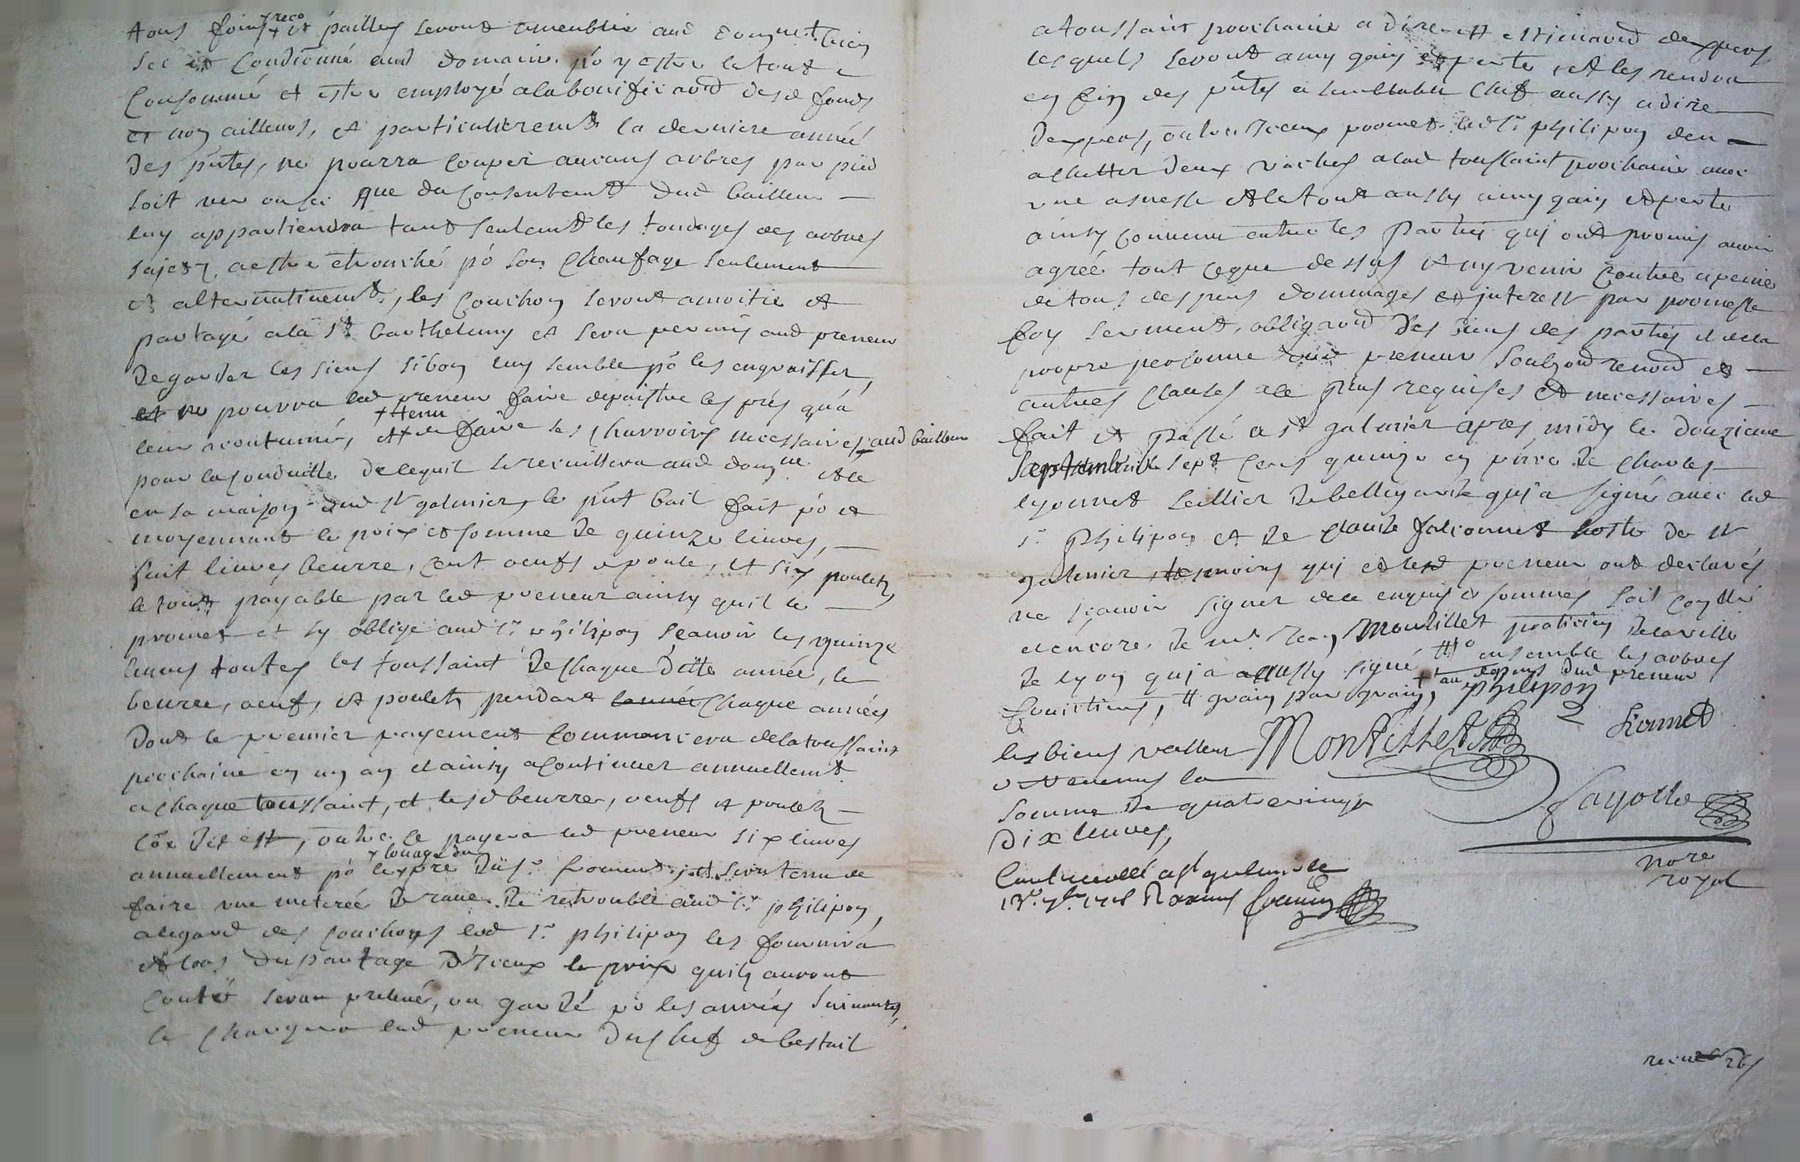 tous foins et pailles seront ameublis aud domyne bien
sec et Conditionné aud domaine po y estre le tout
Consommé et estre employé a la bonificaõn desd fonds
et non ailleurs, et particulieremt la derniere année
des pñtes, ne pourra Couper aucuns arbres par pied
soit ver ou sec que du Consentemt dud bailleur
luy appartiendra tant seulemt les tondages des arbres
sujets a estre ébranché po son Chaufage seulement
et alternativemt, les Couchons seront a moitié et
partagé a la st barthelemy et sera permis aud preneur
de garder les siens si bon luy semble po les engraisser,
et ne pourra led preneur faire depaistre les prés qu'a
leur acoutumé, et de faire les Charroirs necessaires aud bailleur
+ tenu
pour la Conduitte de ce quil se recuillera aud domyne
en sa maison dud st galmier, le pñt bail fait po et
moyennant le prix et somme de quinze livres,
huit livres beurre, Cent oeufs de poule, et six poulets
le tout payable par led preneur ainsy quil le
promet et sy oblige aud sr philipon, sçavoir les quinze
livres toutes les toussaint de Chaque ditte année, le
beurre, oeufs, et poulets pendant Chaque années
dont le premier payement Commancera de la toussaint
prochaine en un an et ainsy a Continuer annuellemt
a chaque toussaint, et lesd beurre, oeufs et poulets
Coe dit est, outre ce payera led preneur six livres
annuellement po le pré du sr
+ louage du
faire une meterée de rave de retrouble aud sr philipon,
a legard des Couchons led sr philipon les fournira
et lors du partage d'iceux le prix quils auront
Couté sera prelevé, ou gardé po les années suivantes,
se Chargera led preneur du chef de bestail
a toussaint prochaine a dire et estimaõn dexpers
lesquels seront a my gain et perte, et les rendra
en fin des pñtes a semblable Chef aussy a dire
dexpers, outre iceux promet led sr philipon den
achetter deux vaches a lad toussaint prochaine avec
une asnesse et le tout aussy a my gain et perte
ainsy Convenu entre les parties qui ont promis avoir
agréé tout ce que dessus et ny venir Contre a peine
de tous despens dommages et interest par promesse
foy serment, obligaõn des biens des parties et de la
propre personne dud preneur Soubz renonõn et
autres Clauses a ce plus requises et necessaires
fait et passé a st galmier apres midy le douzieme
Septembre sept Cens quinze en pñce de Charles
lyonnet sellier de bellegarde qui a signé avec led
sr philipon et de Claude falconnet hoste de st
galmier, temoins qui et led preneur ont declarés
ne sçavoir signer de ce enquis et sommés soit Controllé
et encore de mr Jean Montillet praticien de la ville
de lyon qui a aussy signé ensemble les arbres
fruitiers, grain par grain, + au depens dud preneur
philipon
Lionnet
Montillet
Fayolle
Nore
royal
les biens valleur
revenus la
somme de quatrevingt
dix livres,
Controllé a st galmier le